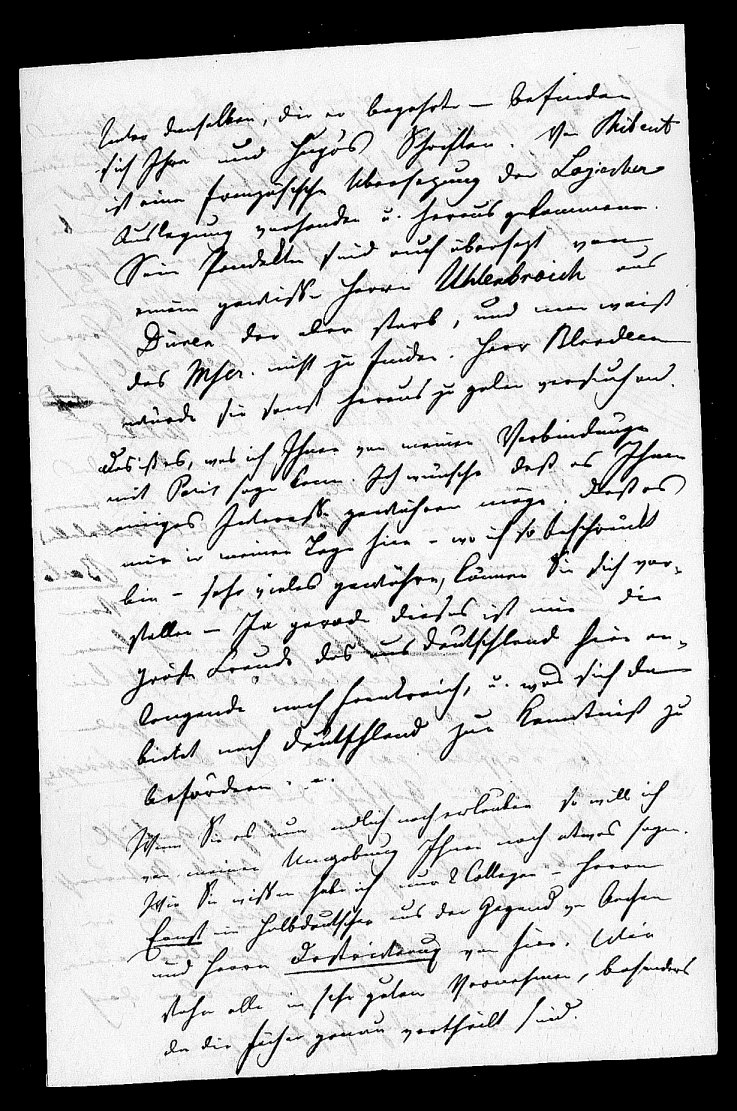 Unter denselben, die er begehrte – befinden
sich Ihre und Hugo's Schriften. Von Thibaut
ist eine französische Übersetzung der Logischen
Auslegung vorhanden u. herausgekommen.
Sein Pandekten sind auch übersetzt von
einem gewissen Herrn Uhlenbroich aus
Düren der aber starb, und man weiß
das Mscr. nicht zu finden. Herr Blondeau
würde sie sonst heraus zu geben versuchen.
Das ist es, was ich Ihnen von meinen Verbindungen
mit Paris sagen kann. Ich wünsche daß es Ihnen
einiges Interesse gewähren möge. Daß es
mir in meiner Lage hier – wo ich so beschränkt
bin – sehr vieles gewähre, können Sie sich vor-
stellen – Ja gerade dieses ist mir die
größte Freude das aus Deutschland hier an-
langende nach Frankreich, u. was sich da
bietet nach Deutschland zur Kenntniß zu
befördern. –.
Wenn Sie es nun endlich noch erlauben so will ich
von meiner Umgebung Ihnen noch etwas sagen.
Wie Sie wissen habe ich nur 2 Collegen – Herrn
Ernst ein Halbdeutscher aus der Gegend von Aachen
und Herrn Destriveaux von hier. Wir
stehn alle in sehr gutem Vernehmen, besonders
da die Fächer genau vertheilt sind.